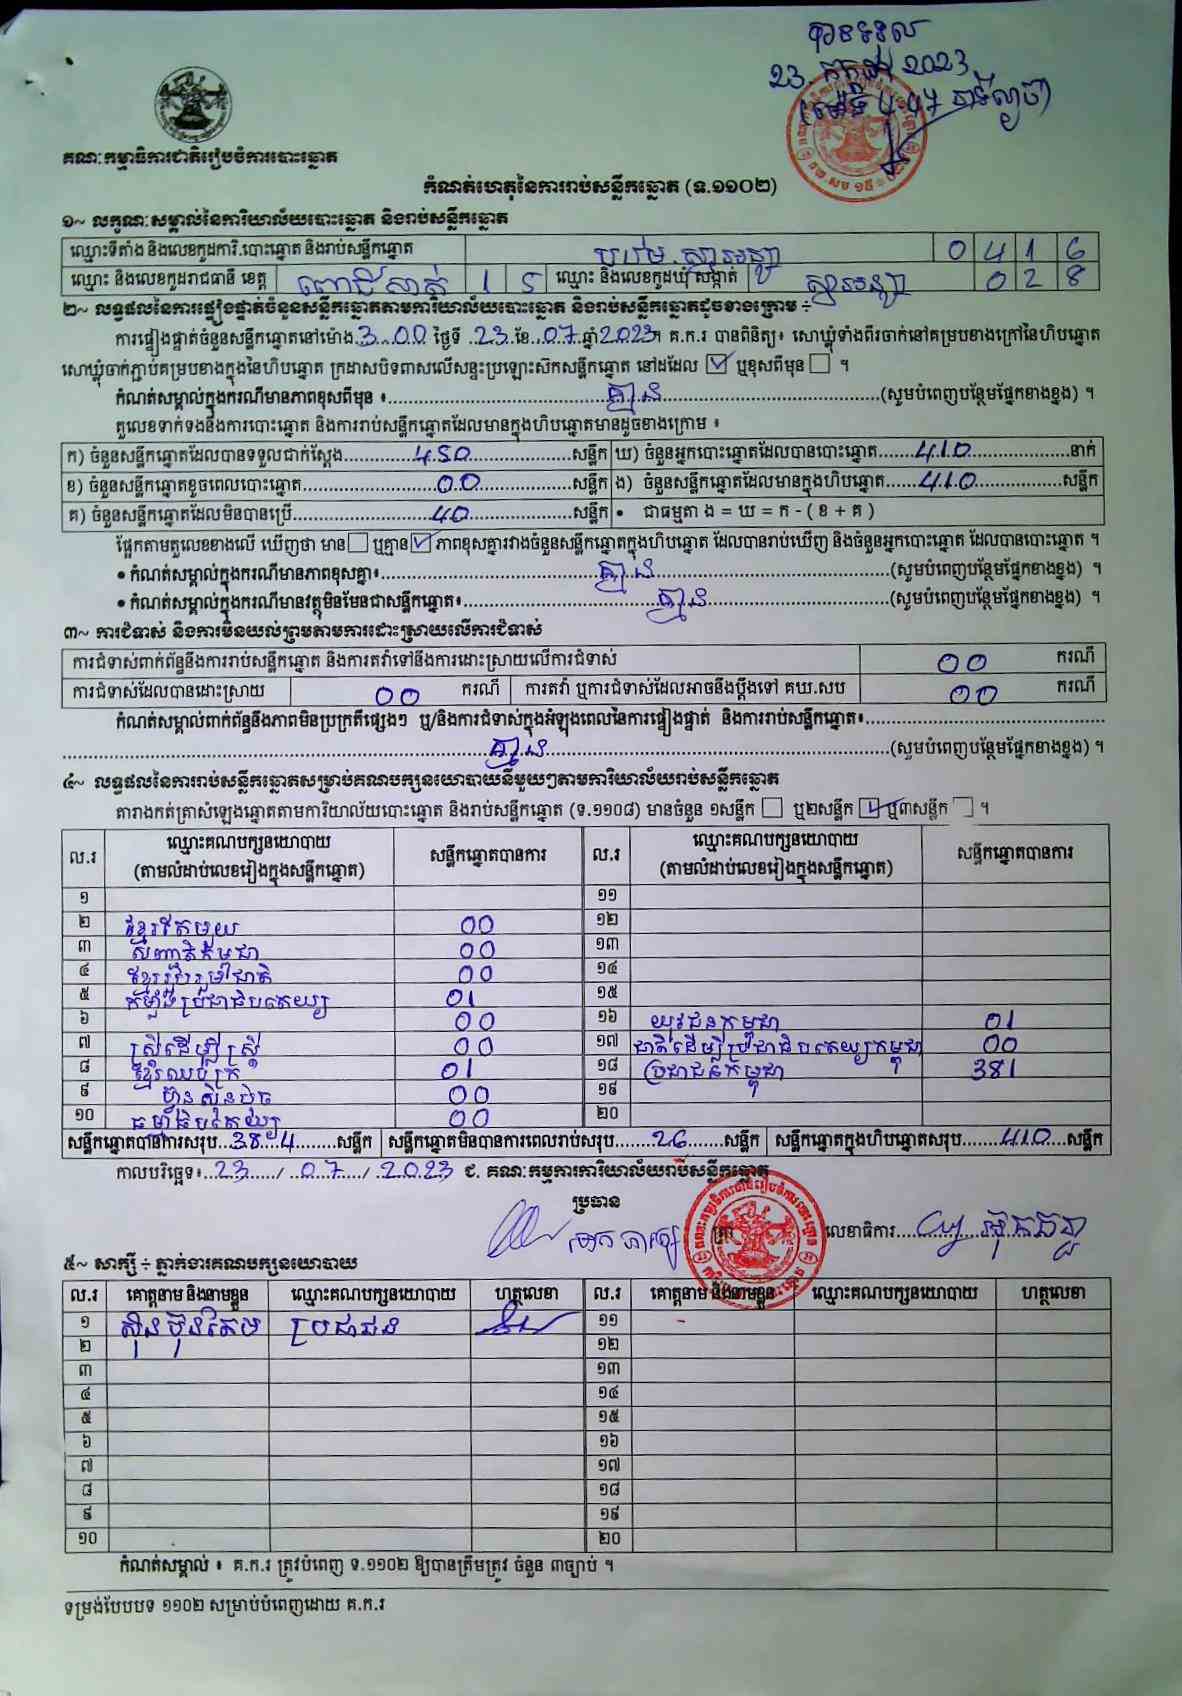 បានទទួល
23. កក្កដា 2023
គណៈកម្មាធិការជាតិរៀបចំការបោះឆ្នោត
កំណត់ហេតុនៃការរាប់សន្លឹកឆ្នោត (ទ.១១០២)
១~ លក្ខណៈសម្គាល់នៃការិយាល័យបោះឆ្នោត និងរាប់សន្លឹកឆ្នោត
ឈ្មោះទីតាំង និងលេខកូដការិ.បោះឆ្នោត និងរាប់សន្លឹកឆ្នោត 0 4 1 6
ឈ្មោះ និងលេខកូដរាជធានី ខេត្ត ពោធិ៍សាត់ 1 5 ឈ្មោះ និងលេខកូដឃុំ សង្កាត់ 0 2 8
២~ លទ្ធផលនៃការផ្ទៀងផ្ទាត់ចំនួនសន្លឹកឆ្នោតតាមការិយាល័យបោះឆ្នោត និងរាប់សន្លឹកឆ្នោតដូចខាងក្រោម ÷
ការផ្ទៀងផ្ទាត់ចំនួនសន្លឹកឆ្នោតនៅម៉ោង 3:00 ថ្ងៃទី 23 ខែ 07 ឆ្នាំ 2023។ គ.ក.រ បានពិនិត្យ៖ សោឃ្លុំទាំងពីរចាក់នៅគម្របខាងក្រៅនៃហិបឆ្នោត
សោឃ្លុំចាក់ភ្ជាប់គម្របខាងក្នុងនៃហិបឆ្នោត ក្រដាសបិទពាសលើសន្ទះប្រឡោះស៊កសន្លឹកឆ្នោត នៅដដែល ☑ ឬខុសពីមុន ☐ ។
កំណត់សម្គាល់ក្នុងករណីមានភាពខុសពីមុន ៖ គ្មាន (សូមបំពេញបន្ថែមផ្នែកខាងខ្នង) ។
តួលេខទាក់ទងនឹងការបោះឆ្នោត និងការរាប់សន្លឹកឆ្នោតដែលមានក្នុងហិបឆ្នោតមានដូចខាងក្រោម ៖
ក) ចំនួនសន្លឹកឆ្នោតដែលបានទទួលជាក់ស្តែង 450 សន្លឹក ឃ) ចំនួនអ្នកបោះឆ្នោតដែលបានបោះឆ្នោត 410 នាក់
ខ) ចំនួនសន្លឹកឆ្នោតខូចពេលបោះឆ្នោត 00 សន្លឹក ង) ចំនួនសន្លឹកឆ្នោតដែលមានក្នុងហិបឆ្នោត 410 សន្លឹក
គ) ចំនួនសន្លឹកឆ្នោតដែលមិនបានប្រើ 40 សន្លឹក • ជាធម្មតា ង = ឃ = ក - ( ខ + គ )
ផ្អែកតាមតួលេខខាងលើ ឃើញថា មាន ☐ ឬគ្មាន ☑ ភាពខុសគ្នារវាងចំនួនសន្លឹកឆ្នោតក្នុងហិបឆ្នោត ដែលបានរាប់ឃើញ និងចំនួនអ្នកបោះឆ្នោត ដែលបានបោះឆ្នោត ។
• កំណត់សម្គាល់ក្នុងករណីមានភាពខុសគ្នា៖ គ្មាន (សូមបំពេញបន្ថែមផ្នែកខាងខ្នង) ។
• កំណត់សម្គាល់ក្នុងករណីមានវត្ថុមិនមែនជាសន្លឹកឆ្នោត៖ គ្មាន (សូមបំពេញបន្ថែមផ្នែកខាងខ្នង) ។
៣~ ការជំទាស់ និងការមិនយល់ព្រមតាមការដោះស្រាយលើការជំទាស់
ការជំទាស់ពាក់ព័ន្ធនឹងការរាប់សន្លឹកឆ្នោត និងការតវ៉ាទៅនឹងការដោះស្រាយលើការជំទាស់ 00 ករណី
ការជំទាស់ដែលបានដោះស្រាយ 00 ករណី ការតវ៉ា ឬការជំទាស់ដែលអាចនឹងប្តឹងទៅ គឃ.សប 00 ករណី
កំណត់សម្គាល់ពាក់ព័ន្ធនឹងភាពមិនប្រក្រតីផ្សេងៗ ឬ/និងការជំទាស់ក្នុងអំឡុងពេលនៃការផ្ទៀងផ្ទាត់ និងការរាប់សន្លឹកឆ្នោត៖
គ្មាន (សូមបំពេញបន្ថែមផ្នែកខាងខ្នង) ។
៤~ លទ្ធផលនៃការរាប់សន្លឹកឆ្នោតសម្រាប់គណបក្សនយោបាយនីមួយៗតាមការិយាល័យរាប់សន្លឹកឆ្នោត
តារាងកត់ត្រាសំឡេងឆ្នោតតាមការិយាល័យបោះឆ្នោត និងរាប់សន្លឹកឆ្នោត (ទ.១១០៨) មានចំនួន ១សន្លឹក ☐ ឬ២សន្លឹក ☑ ឬ៣សន្លឹក ☐ ។
ល.រ ឈ្មោះគណបក្សនយោបាយ (តាមលំដាប់លេខរៀងក្នុងសន្លឹកឆ្នោត) សន្លឹកឆ្នោតបានការ ល.រ ឈ្មោះគណបក្សនយោបាយ (តាមលំដាប់លេខរៀងក្នុងសន្លឹកឆ្នោត) សន្លឹកឆ្នោតបានការ
១ ១១
២ ខ្មែរតែមួយ 00 ១២
៣ សញ្ជាតិកម្ពុជា 00 ១៣
៤ ខ្មែររួបរួមជាតិ 00 ១៤
៥ កម្លាំងប្រជាធិបតេយ្យ 01 ១៥
៦ 00 ១៦ យុវជនកម្ពុជា 01
៧ ស្រីដើម្បីស្រី 00 ១៧ ជាតិដើម្បីប្រជាធិបតេយ្យកម្ពុជា 00
៨ ខ្មែរឈប់ក្រ 01 ១៨ ប្រជាជនកម្ពុជា 381
៩ ហ៊្វុនស៊ិនប៉ិច 00 ១៩
១០ ធម្មាធិបតេយ្យ 00 ២០
សន្លឹកឆ្នោតបានការសរុប 384 សន្លឹក សន្លឹកឆ្នោតមិនបានការពេលរាប់សរុប 26 សន្លឹក សន្លឹកឆ្នោតក្នុងហិបឆ្នោតសរុប 410 សន្លឹក
កាលបរិច្ឆេទ៖ 23 / 07 / 2023 ជ. គណៈកម្មការការិយាល័យរាប់សន្លឹកឆ្នោត
ប្រធាន
ត្រា លេខាធិការ
៥~ សាក្សី ÷ ភ្នាក់ងារគណបក្សនយោបាយ
ល.រ គោត្តនាម និងនាមខ្លួន ឈ្មោះគណបក្សនយោបាយ ហត្ថលេខា ល.រ គោត្តនាម និងនាមខ្លួន ឈ្មោះគណបក្សនយោបាយ ហត្ថលេខា
១ ប្រជាជន ១១
២ ១២
៣ ១៣
៤ ១៤
៥ ១៥
៦ ១៦
៧ ១៧
៨ ១៨
៩ ១៩
១០ ២០
កំណត់សម្គាល់ ៖ គ.ក.រ ត្រូវបំពេញ ទ.១១០២ ឱ្យបានត្រឹមត្រូវ ចំនួន ៣ច្បាប់ ។
ទម្រង់បែបបទ ១១០២ សម្រាប់បំពេញដោយ គ.ក.រ